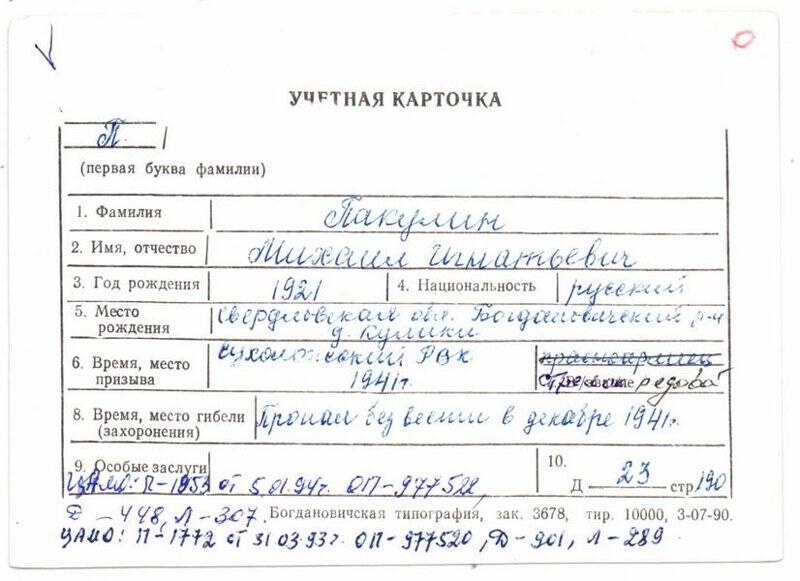 УЧЕТНАЯ КАРТОЧКА
П.
(первая буква фамилии)
1. Фамилия Пакулин
2. Имя, отчество Михаил Игнатьевич
3. Год рождения 1921 4. Национальность русский
5. Место рождения Свердловская обл. Богдановичский р-н
д. Кулики
6. Время, место призыва Сухоложский РВК
1941г. красноармеец
рядовой
8. Время, место гибели (захоронения) Пропал без вести в декабре 1941г.
9. Особые заслуги 10.
Д 23 стр 190
ЦАМО: П-1953 от 5.01.94г. ОП-977522,
Д-448, Л-307. Богдановичская типография, зак. 3678, тир. 10000, 3-07-90.
ЦАМО: П-1772 от 31.03.93г. ОП-977520, Д-901, Л-289